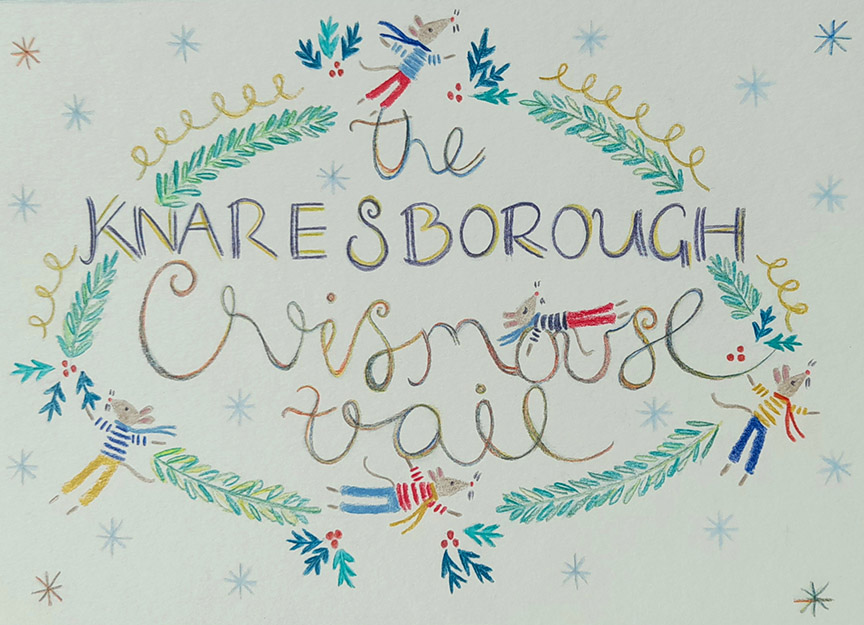 the
KNARESBOROUGH
Crismouse
trail